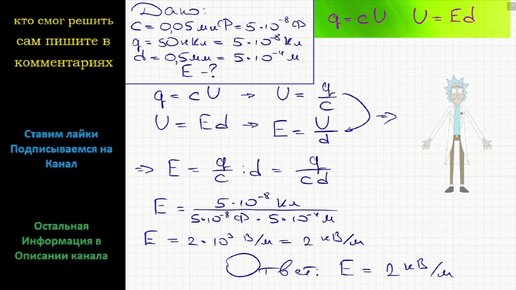 кто смог решить
сам пишите в
комментариях
Ставим лайки
Подписываемся на
Канал
Остальная
Информация в
Описании канала
Дано:
C = 0,05 мкФ = 5·10⁻⁸ Ф
q = 50 нКл = 5·10⁻⁸ Кл
d = 0,5 мм = 5·10⁻⁴ м
E - ?
q = cU U = Ed
q = cU → U = q/c
U = Ed → E = U/d ⇒
⇒ E = q/c : d = q/cd
E = 5·10⁻⁸ Кл / 5·10⁻⁸ Ф · 5·10⁻⁴ м
E = 2·10³ В/м = 2 кВ/м
Ответ: E = 2 кВ/м